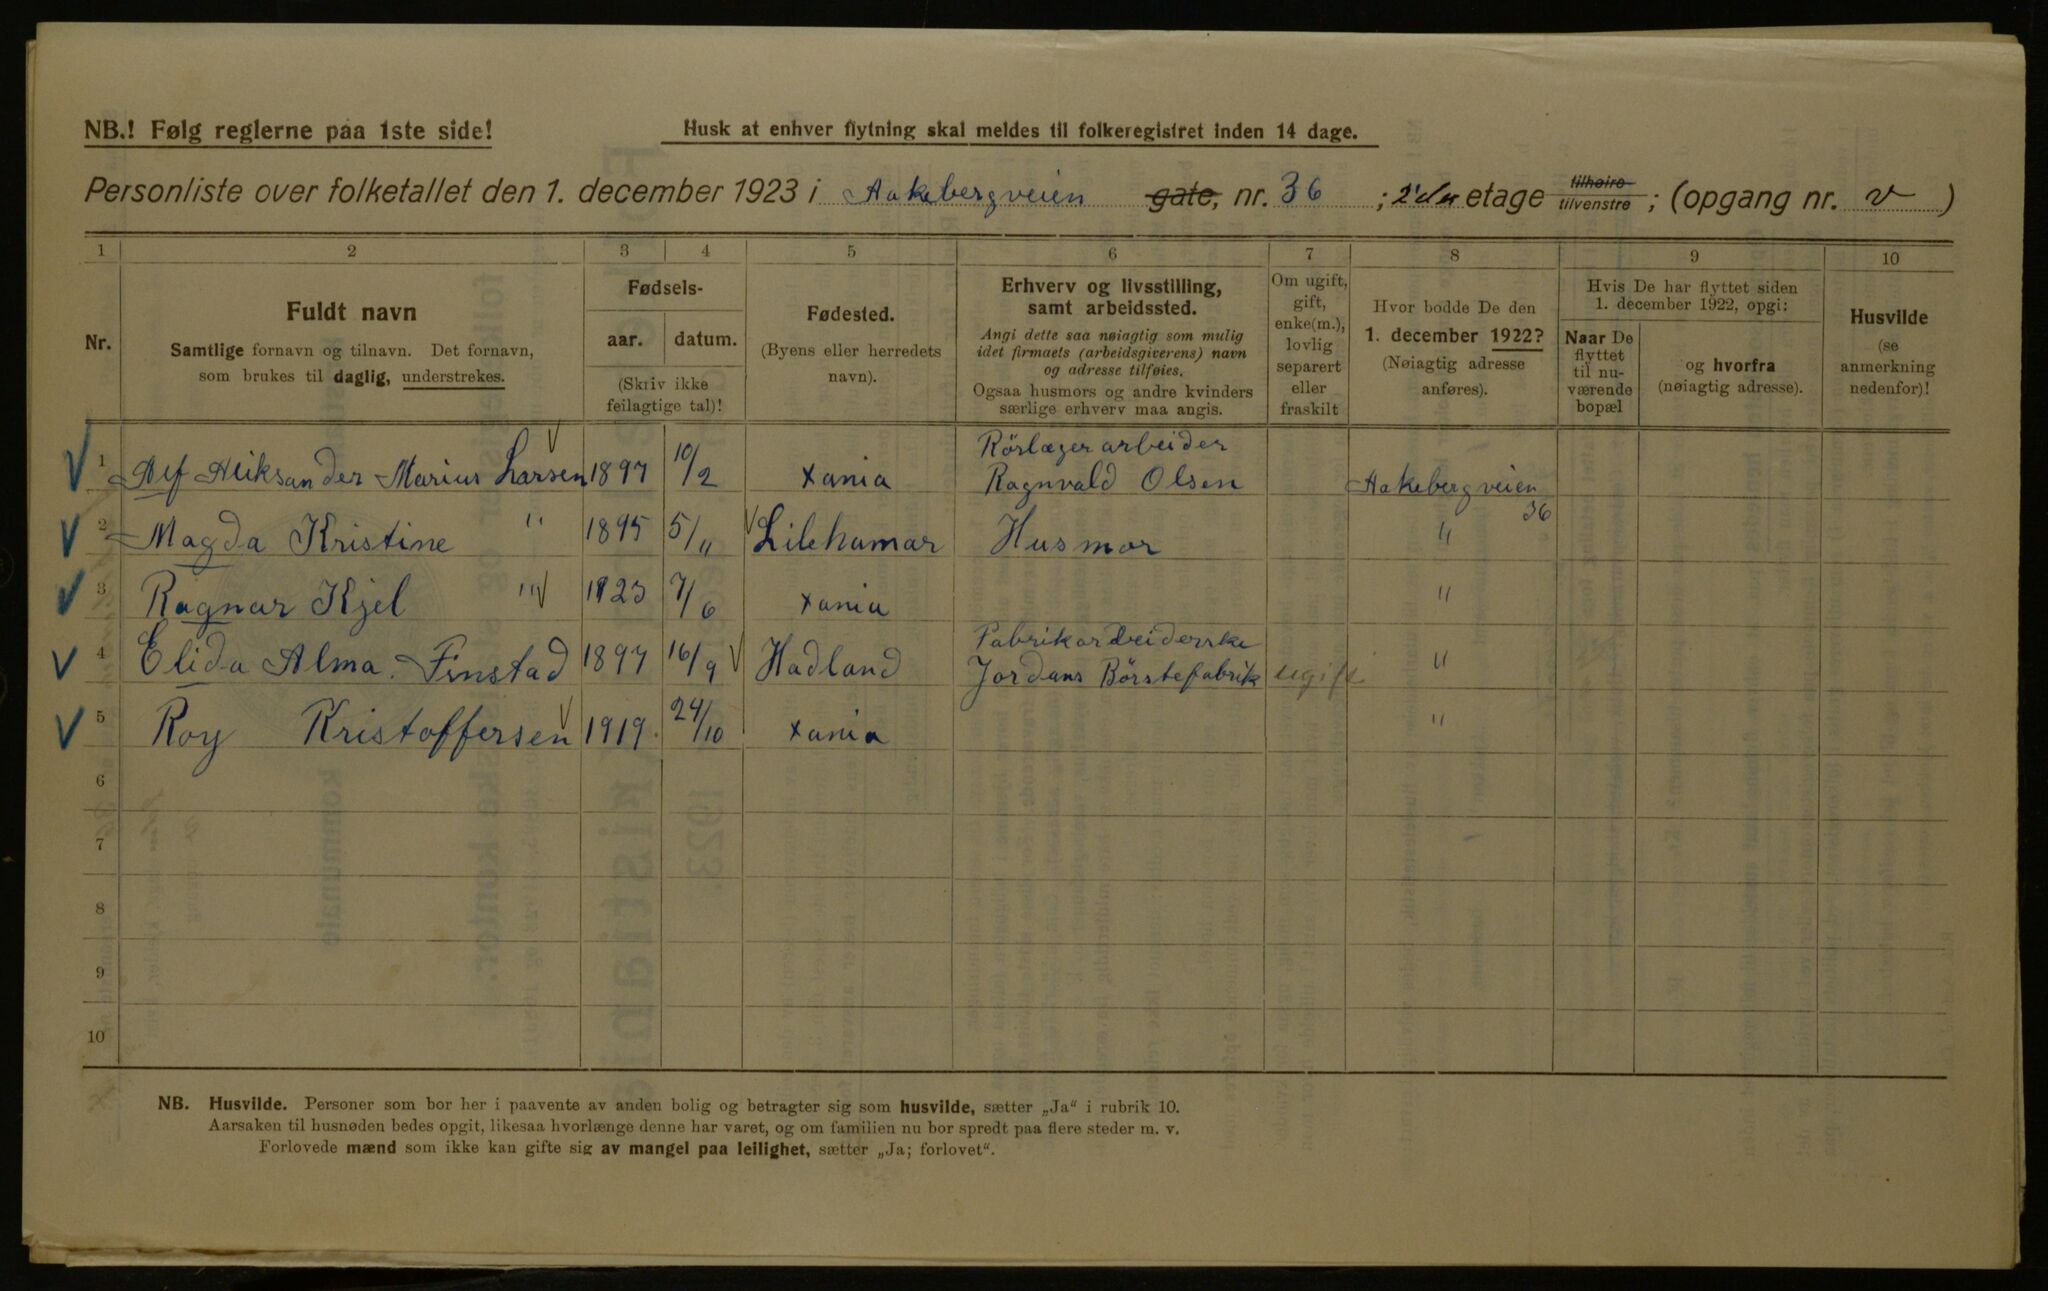 NB.! Følg reglerne paa 1ste side!
Husk at enhver flytning skal meldes til folkeregistret inden 14 dage.
Personliste over folketallet den 1. december 1923 i Aakebergveien gate, nr. 36 ; 2'den etage tilhøire tilvenstre ; (opgang nr. v )
1 2 3 4 5 6 7 8 9 10
Nr.
Fuldt navn
Samtlige fornavn og tilnavn. Det fornavn,
som brukes til daglig, understrekes.
Fødsels-
aar. datum.
(Skriv ikke
feilagtige tal)!
Fødested.
(Byens eller herredets
navn).
Erhverv og livsstilling,
samt arbeidssted.
Angi dette saa nøiagtig som mulig
idet firmaets (arbeidsgiverens) navn
og adresse tilføies.
Ogsaa husmors og andre kvinders
særlige erhverv maa angis.
Om ugift,
gift,
enke(m.),
lovlig
separert
eller
fraskilt
Hvor bodde De den
1. december 1922?
(Nøiagtig adresse
anføres).
Hvis De har flyttet siden
1. december 1922, opgi:
Naar De
flyttet
til nu-
værende
bopæl
og hvorfra
(nøiagtig adresse).
Husvilde
(se
anmerkning
nedenfor)!
Rörlægerarbeider
1 Alf Aleksander Marius Larsen 1897 10/2 Xania Ragnvald Olsen Aakebergveien
36
2 Magda Kristine " 1895 5/11 Lilehamar Husmor "
3 Ragnar Kjel " 1923 7/6 Xania "
Fabrikarbeiderske
4 Elida Alma. Finstad 1897 16/9 Hadland Jordans Börstefabrik ugift "
5 Roy Kristoffersen 1919. 24/10 Xania "
6
7
8
9
10
NB. Husvilde. Personer som bor her i paavente av anden bolig og betragter sig som husvilde, sætter „Ja“ i rubrik 10.
Aarsaken til husnøden bedes opgit, likesaa hvorlænge denne har varet, og om familien nu bor spredt paa flere steder m. v.
Forlovede mænd som ikke kan gifte sig av mangel paa leilighet, sætter „Ja; forlovet“.